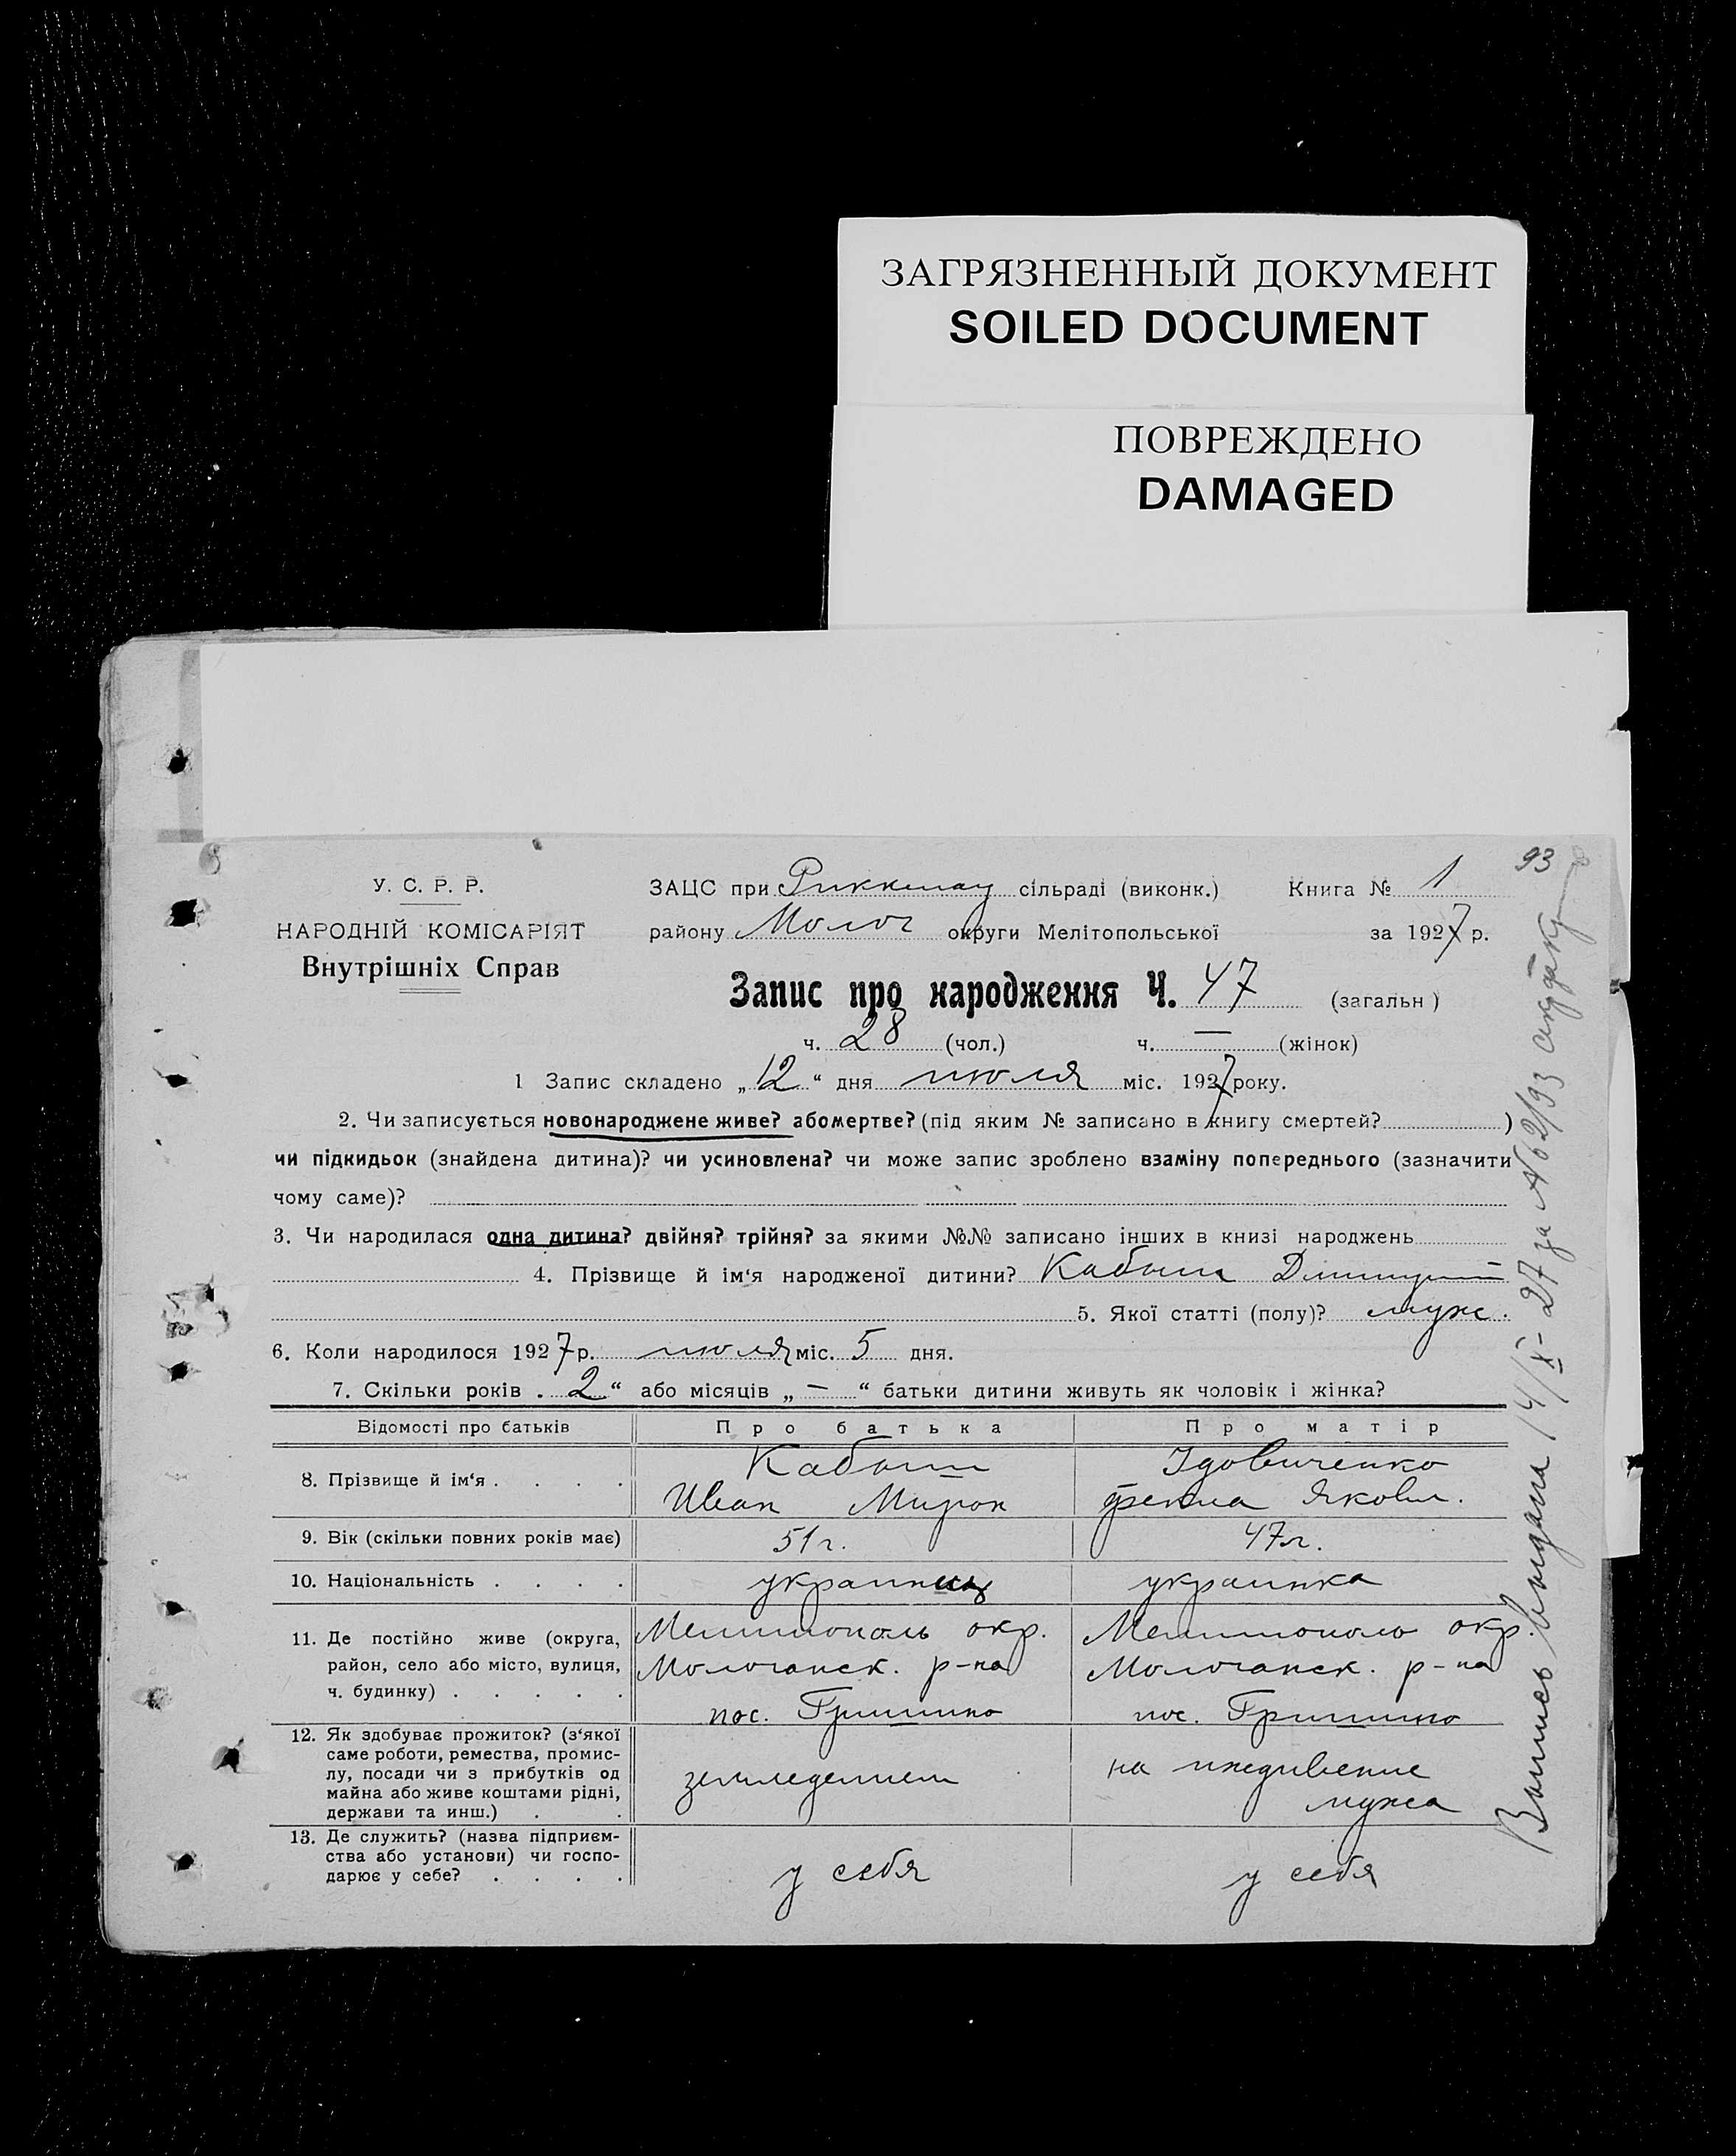 ЗАГРЯЗНЕННЫЙ ДОКУМЕНТ
SOILED DOCUMENT
ПОВРЕЖДЕНО
DAMAGED
93
У. С. Р. Р.
НАРОДНІЙ КОМІСАРІЯТ
Внутрішніх Справ
ЗАЦС при Риккенау сільраді (виконк.) Книга № 1
району Молоч округи Мелітопольської за 1927 р.
Запис про народження Ч. 47 (загальн)
ч. 28 (чол.) ч. — (жінок)
1 Запис складено „12“ дня июля міс. 1927 року.
2. Чи записується новонароджене живе? або мертве? (під яким № записано в книгу смертей? )
чи підкидьок (знайдена дитина)? чи усиновлена? чи може запис зроблено взаміну попереднього (зазначити
чому саме)?
3. Чи народилася одна дитина? двійня? трійня? за якими №№ записано інших в книзі народжень
4. Прізвище й ім‘я народженої дитини? Кабыш Дмитрий
5. Якої статті (полу)? муж.
6. Коли народилося 1927 р. июля міс. 5 дня.
7. Скільки років . 2 “ або місяців „ — “ батьки дитини живуть як чоловік і жінка?
Відомості про батьків Про батька Про матір
8. Прізвище й ім‘я . . . . Кабыш Иван Мирон Удовиченко Фекла Яковл.
9. Вік (скільки повних років має) 51 г. 47 л.
10. Національність . . . . украинец украинка
11. Де постійно живе (округа, Мелитополь окр. Мелитополь окр.
район, село або місто, вулиця, Молочанск. р-на Молочанск. р-на
ч. будинку) . . . . . пос. Гришино пос. Гришино
12. Як здобуває прожиток? (з‘якої
саме роботи, ремества, промис-
лу, посади чи з прибутків од земледелием на иждивение
майна або живе коштами рідні, мужа
держави та инш.) . .
13. Де служить? (назва підприєм-
ства або установи) чи госпо-
дарює у себе? . . . . у себя у себя
Выпись выдана 14/X-27 за № 62/93